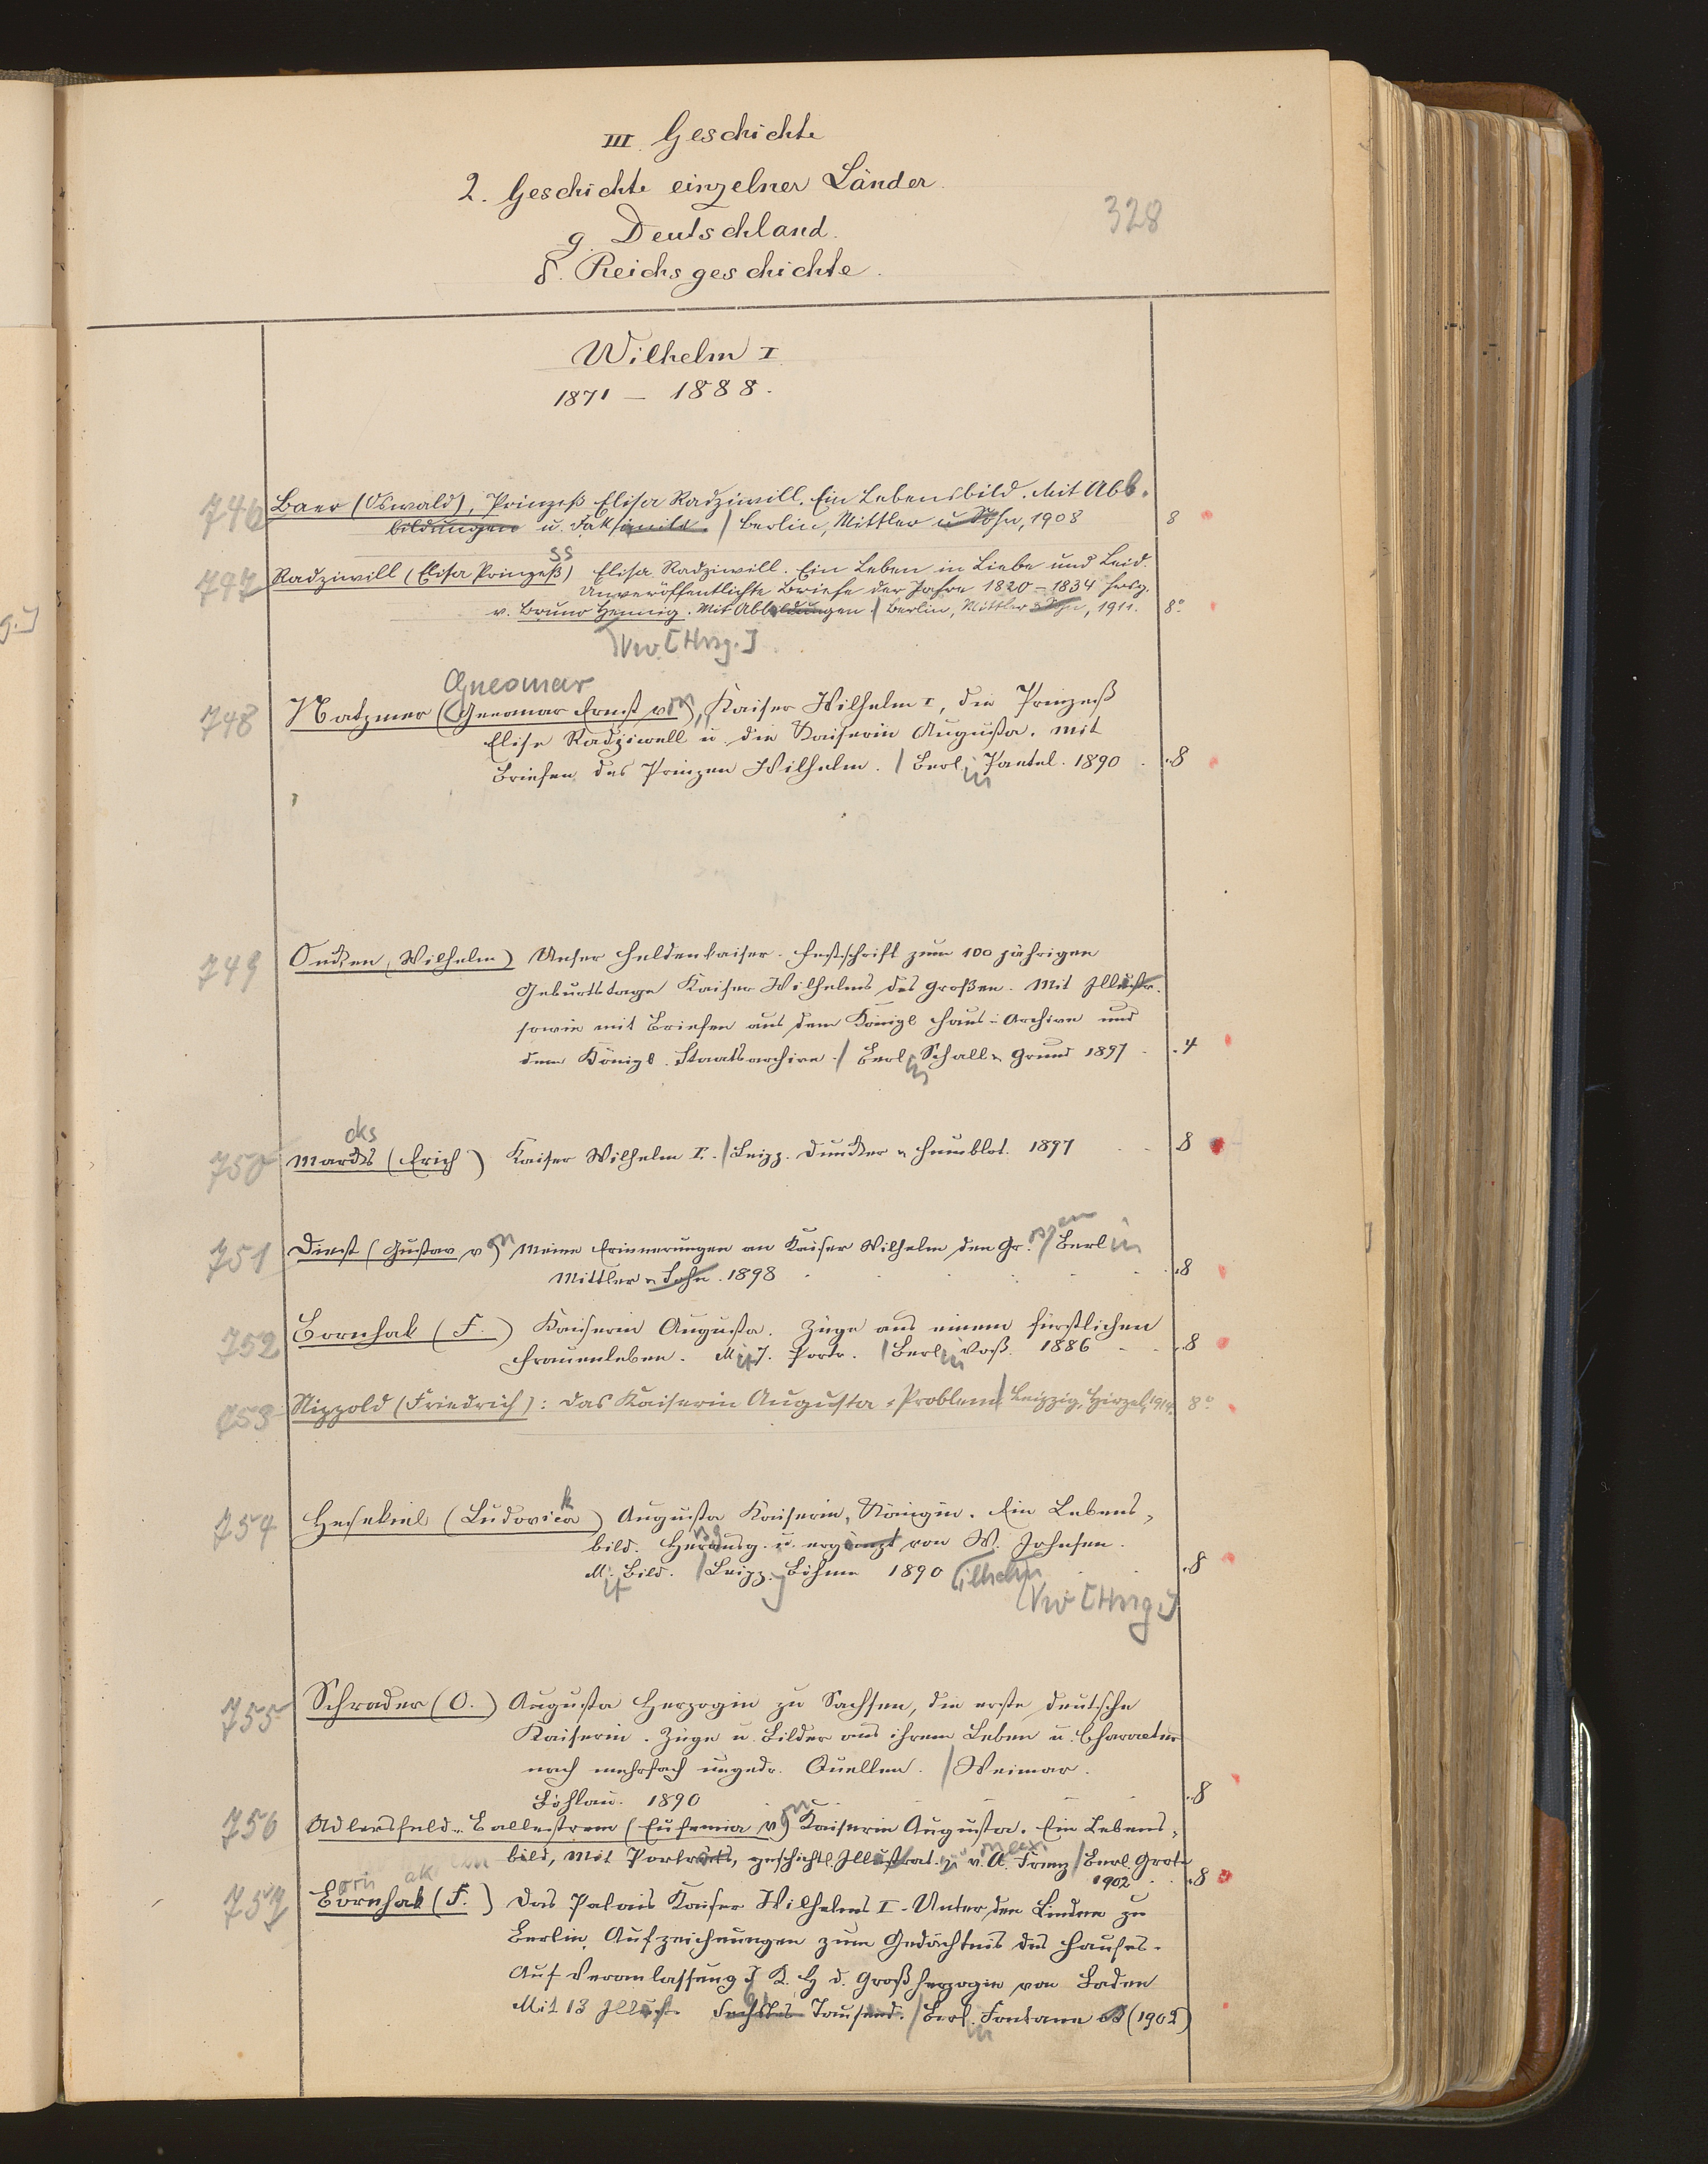 III. Geschichte
2. Geschichte einzelner Länder.
328
g. Deutschland.
δ. Reichsgeschichte.
Wilhelm I.
1871 – 1888.
746 Baer (Oswald), Prinzeß Elisa Radziwill. Ein Lebensbild. Mit Abb.
bildungen u. Faksimile. / Berlin, Mittler u Sohn, 1908 8
ss
747 Radziwill (Elisa Prinzeß) Elisa Radziwill. Ein Leben in Liebe und Leid.
Unveröffentlichte Briefe der Jahre 1820–1834 hrsg.
v. Bruno Hennig. Mit Abbildungen / Berlin, Mittler & Sohn, 1911. 8°
Vw. [Hrsg.]
Gneomar
748 Natzmer (Gneomar Ernst von), Kaiser Wilhelm I, die Prinzeß
Elise Radziwill u. die Kaiserin Augusta. Mit
Briefen des Prinzen Wilhelm. / Berlin Paetel. 1890 8
749 Oncken (Wilhelm) Unser Heldenkaiser. Festschrift zum 100 jährigen
Geburtstage Kaiser Wilhelms des Großen. Mit Illustr.
sowie mit Briefen aus dem Königl. Haus-Archive und
dem Königl. Staatsarchive. / Berlin Schall & Grund 1897 4
cks
750 Marcks (Erich) Kaiser Wilhelm I. / Leipz. Duncker & Humblot. 1897 8
751 Diest (Gustav von) Meine Erinnerungen an Kaiser Wilhelm den Gr. oßen / Berlin
Mittler & Sohn. 1898 8
752 Bornhak (F.) Kaiserin Augusta. Züge aus einem fürstlichen
Frauenleben. Mit 7. Portr. / Berlin Voß. 1886 8
753 Nippold (Friedrich): Das Kaiserin Augusta-Problem / Leipzig, Hirzel, 1914. 8°
k
754 Hesekiel (Ludovica) Augusta Kaiserin, Königin. Ein Lebens-
bild. Herausg. u. ergänzt von W. Johnsen.
Mit Bild. / Leipz. Böhme 1890 ilhelm 8
Vw [Hrsg.]
755 Schrader (O.) Augusta Herzogin zu Sachsen, die erste deutsche
Kaiserin. Züge u. Bilder aus ihrem Leben u. Character
nach mehrfach ungedr. Quellen. / Weimar.
Böhlau. 1890 8
756 Adlersfeld-Ballestrem (Eufemia von) Kaiserin Augusta. Ein Lebens-
bild, Mit Porträts, geschichtl. Illustrat. v. A. Franz / Berl. Grote
1902 8
orn ak
757 Bornhak (F.) Das Palais Kaiser Wilhelms I. Unter den Linden zu
Berlin. Aufzeichnungen zum Gedächtnis des Hauses.
Auf Veranlassung I. K. H. d. Großherzogin von Baden
Mit 13 Illustr. Sechstes Tausend. / Berlin Fontane (1902)